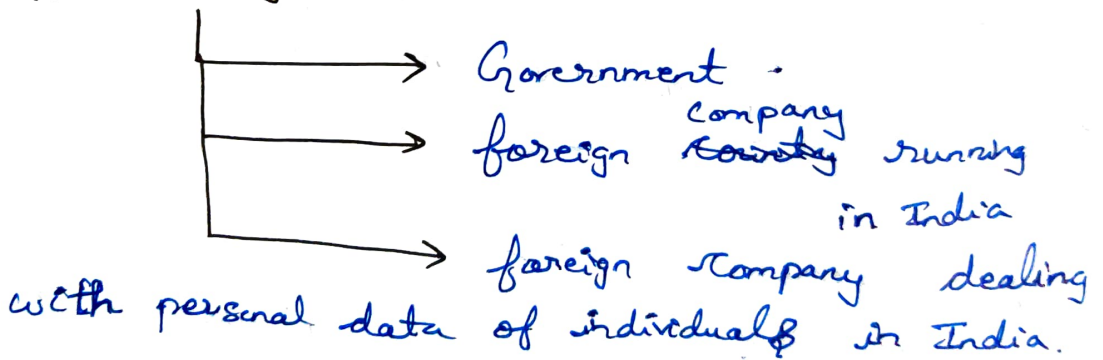 Government .
company
foreign country running
in India
foreign company dealing
with personal data of individuals in India.